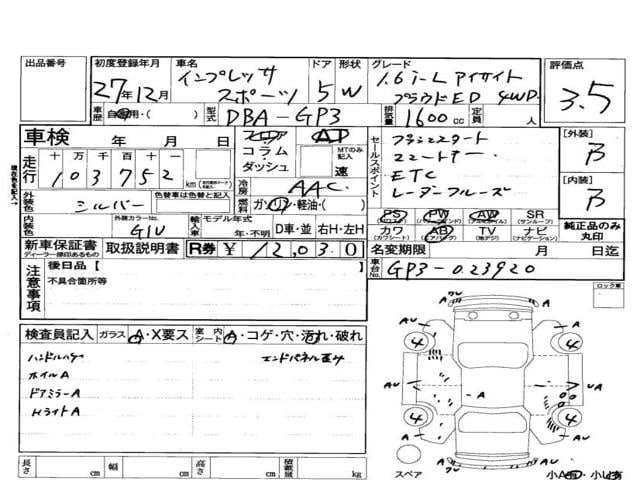 出品番号
初度登録年月 車名 ドア 形状 グレード 評価点
27年12月 インプレッサ スポーツ 5 W 1.6i-L アイサイト プラウドED 4WD 3.5
車歴 自家用・( ) 型式 DBA-GP3 排気量 1600cc 定員 人
車検 年 月 日 フロア コラム・ダッシュ AT MTのみ記入 速
走行 十 万 千 百 十 一
103752 km
冷房 AAC
セールスポイント
プッシュスタート
スマートキー
ETC
レーダークルーズ
[外装] B
[内装] B
外装色 シルバー 色替車は色替と記入 燃料 ガソリン・軽油・( )
PS PW AW SR(サンルーフ)
カワ(カワシート) AB(エアバッグ) TV(地デジ) ナビ(ナビゲーション)
純正品のみ丸印
内装色 外装カラーNo. G1U 輸入車 モデル年式 年・不明 D車・並 右H・左H
新車保証書 ディーラー捺印あるもの 取扱説明書 R券 ¥ 12,030
名変期限 月 日迄
車台No. GP3-023920
注意事項 後日品[ ]
不具合箇所等
ロック車
検査員記入 ガラス A・X要ス 室内シート A・コゲ・穴・汚れ・破れ
ホイルA
ドアミラーA
HライトA
エンドパネル歪み
AU
4
4
AU
A
UA
4
4
AU
スペア
長さ cm 幅 cm 高さ cm 積載量 kg